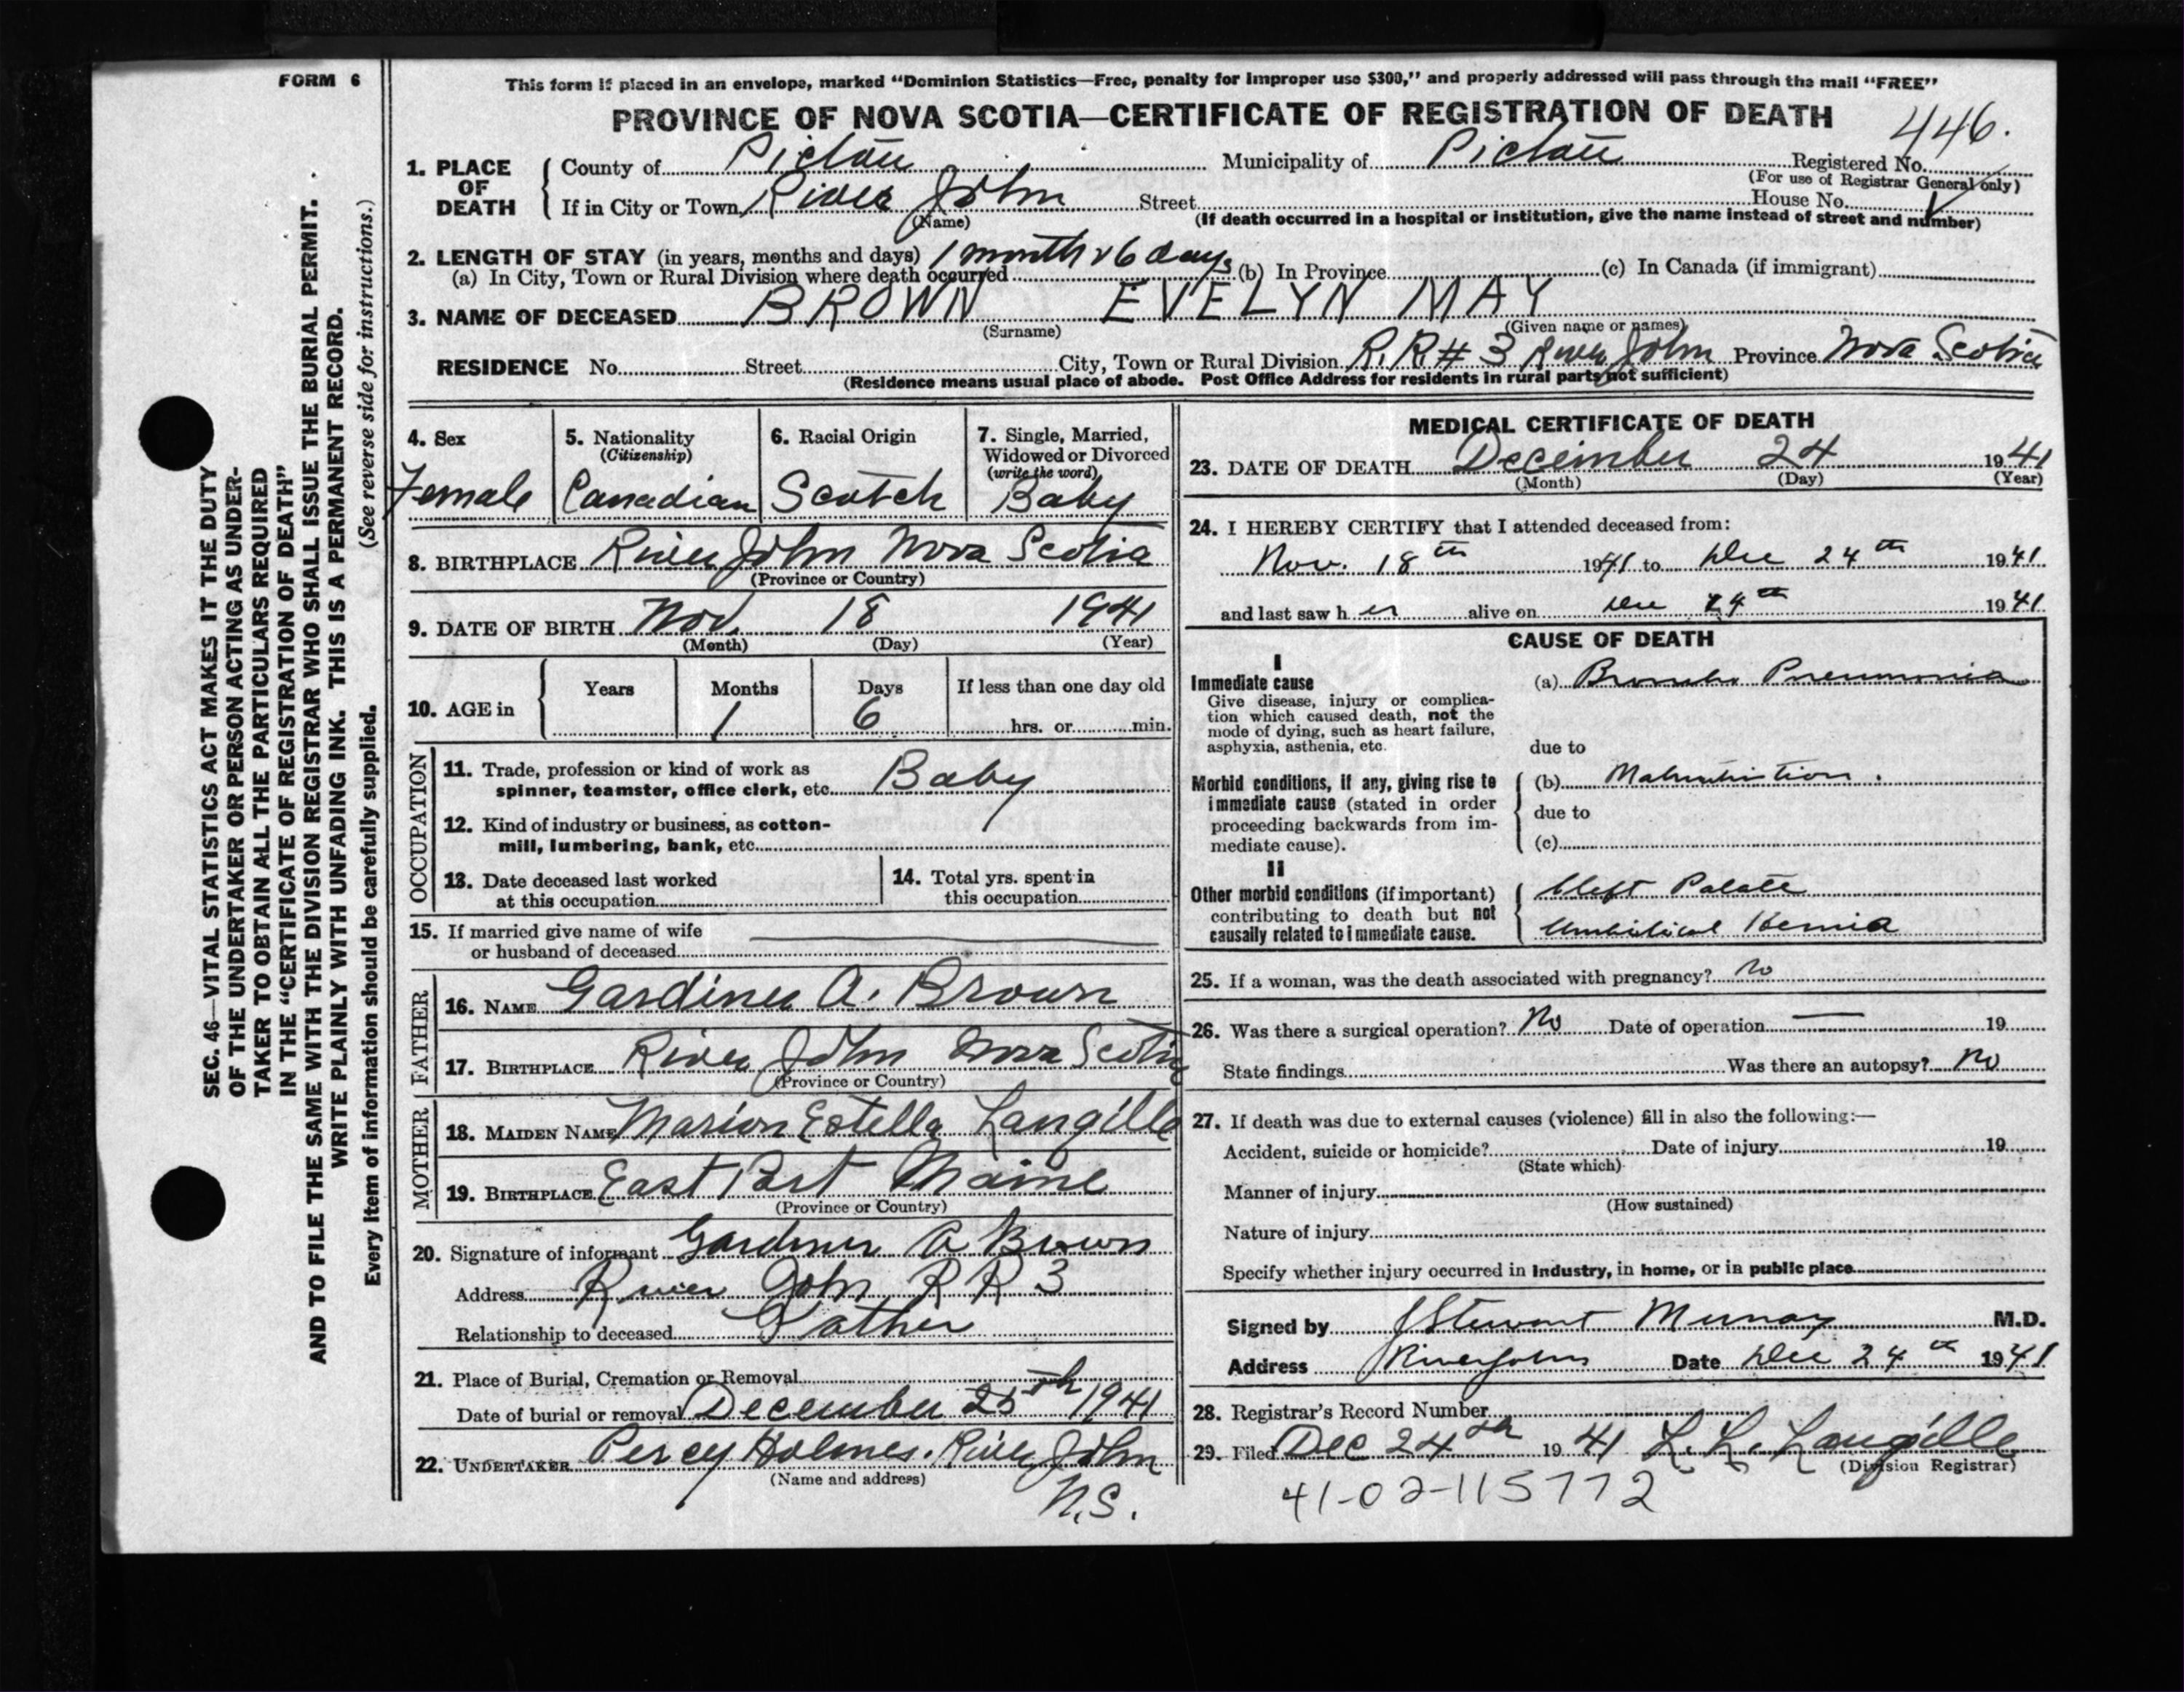 FORM 6
This form if placed in an envelope, marked "Dominion Statistics—Free, penalty for improper use $300," and properly addressed will pass through the mail "FREE"
PROVINCE OF NOVA SCOTIA—CERTIFICATE OF REGISTRATION OF DEATH
446.
1. PLACE OF DEATH
County of Pictou Municipality of Pictou Registered No.
(For use of Registrar General only)
If in City or Town River John Street House No.
(Name) (If death occurred in a hospital or institution, give the name instead of street and number)
2. LENGTH OF STAY (in years, months and days) 1 month & 6 days
(a) In City, Town or Rural Division where death occurred (b) In Province (c) In Canada (if immigrant)
3. NAME OF DECEASED BROWN EVELYN MAY
(Surname) (Given name or names)
RESIDENCE No. Street City, Town or Rural Division R.R.# 3 River John Province Nova Scotia
(Residence means usual place of abode. Post Office Address for residents in rural parts not sufficient)
4. Sex
Female
5. Nationality
(Citizenship)
Canadian
6. Racial Origin
Scotch
7. Single, Married,
Widowed or Divorced
(write the word)
Baby
8. BIRTHPLACE River John Nova Scotia
(Province or Country)
9. DATE OF BIRTH Nov. 18 1941
(Month) (Day) (Year)
10. AGE in
Years Months Days If less than one day old
1 6 hrs. or min.
OCCUPATION
11. Trade, profession or kind of work as
spinner, teamster, office clerk, etc. Baby
12. Kind of industry or business, as cotton-
mill, lumbering, bank, etc.
13. Date deceased last worked
at this occupation
14. Total yrs. spent in
this occupation
15. If married give name of wife
or husband of deceased
FATHER
16. NAME Gardiner A. Brown
17. BIRTHPLACE River John Nova Scotia
(Province or Country)
MOTHER
18. MAIDEN NAME Marion Estella Langille
19. BIRTHPLACE East Port Maine
(Province or Country)
20. Signature of informant Gardiner A Brown
Address River John R R 3
Relationship to deceased Father
21. Place of Burial, Cremation or Removal
Date of burial or removal December 25th 1941
22. UNDERTAKER Percy Holmes. River John
(Name and address)
N.S.
MEDICAL CERTIFICATE OF DEATH
23. DATE OF DEATH December 24 1941
(Month) (Day) (Year)
24. I HEREBY CERTIFY that I attended deceased from:
Nov. 18th 1941 to Dec 24th 1941
and last saw her alive on Dec 24th 1941
CAUSE OF DEATH
I
Immediate cause
Give disease, injury or complica-
tion which caused death, not the
mode of dying, such as heart failure,
asphyxia, asthenia, etc.
(a) Broncho Pneumonia
due to
Morbid conditions, if any, giving rise to
immediate cause (stated in order
proceeding backwards from im-
mediate cause).
(b) Malnutrition.
due to
(c)
II
Other morbid conditions (if important)
contributing to death but not
causally related to immediate cause.
Cleft Palate
Umbilical Hernia
25. If a woman, was the death associated with pregnancy? No
26. Was there a surgical operation? No Date of operation — 19
State findings Was there an autopsy? No
27. If death was due to external causes (violence) fill in also the following:—
Accident, suicide or homicide? Date of injury 19
(State which)
Manner of injury
(How sustained)
Nature of injury
Specify whether injury occurred in industry, in home, or in public place
Signed by J Stewart Murray M.D.
Address River John Date Dec 24th 1941
28. Registrar's Record Number
29. Filed Dec 24th 1941 L. L. Langille
(Division Registrar)
41-02-115772
SEC. 46—VITAL STATISTICS ACT MAKES IT THE DUTY
OF THE UNDERTAKER OR PERSON ACTING AS UNDER-
TAKER TO OBTAIN ALL THE PARTICULARS REQUIRED
IN THE "CERTIFICATE OF REGISTRATION OF DEATH"
AND TO FILE THE SAME WITH THE DIVISION REGISTRAR WHO SHALL ISSUE THE BURIAL PERMIT.
WRITE PLAINLY WITH UNFADING INK. THIS IS A PERMANENT RECORD.
(See reverse side for instructions.)
Every item of information should be carefully supplied.